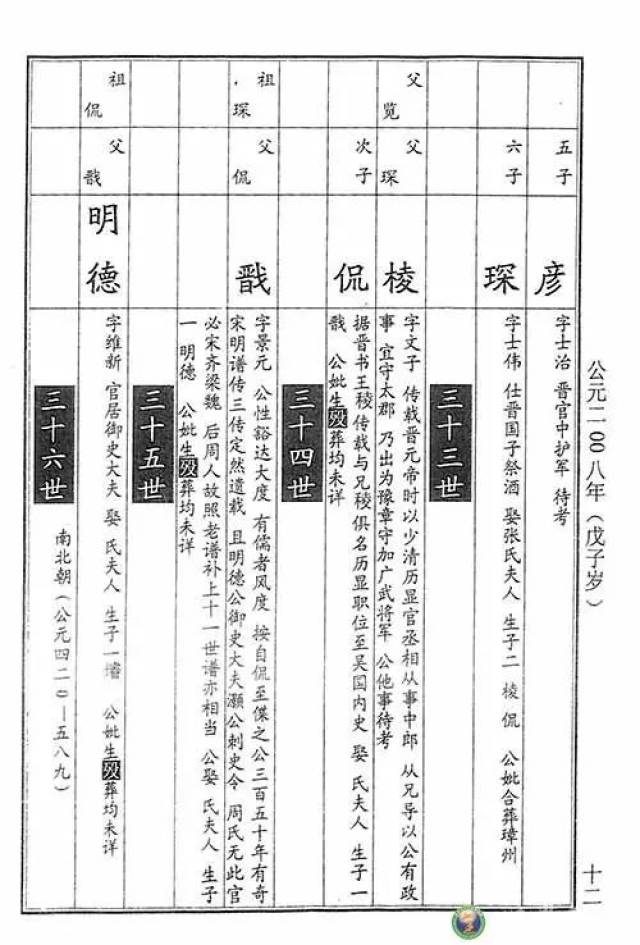 公元二00八年（戊子岁）
十二
五子
彦
字士治 晋官中护军 待考
六子
琛
字士伟 仕晋国子祭酒 娶张氏夫人 生子二 棱 侃 公妣合葬璋州
三十三世
父览
父琛
棱
字文子 传载晋元帝时以少清历显官丞相从事中郎 从兄导以公有政
事 宜守太郡 乃出为豫章守加广武将军 公他事待考
次子
侃
据晋书王稜传载与兄稜俱名历显职位至吴国内史 娶 氏夫人 生子一
戬 公妣生殁葬均未详
三十四世
祖琛
父侃
戬
字景元 公性豁达大度 有儒者风度 按自侃至偞之公三百五十年有奇
宋明谱传三传定然遗载 且明德公御史大夫灏公刺史令 周氏无此官
必宋齐梁魏 后周人故照老谱补上十一世谱亦相当 公娶 氏夫人 生子
一 明德 公妣生殁葬均未详
三十五世
祖侃
父戬
明德
字维新 官居御史大夫 娶 氏夫人 生子一 公妣生殁葬均未详
三十六世
南北朝（公元四二0—五八九）